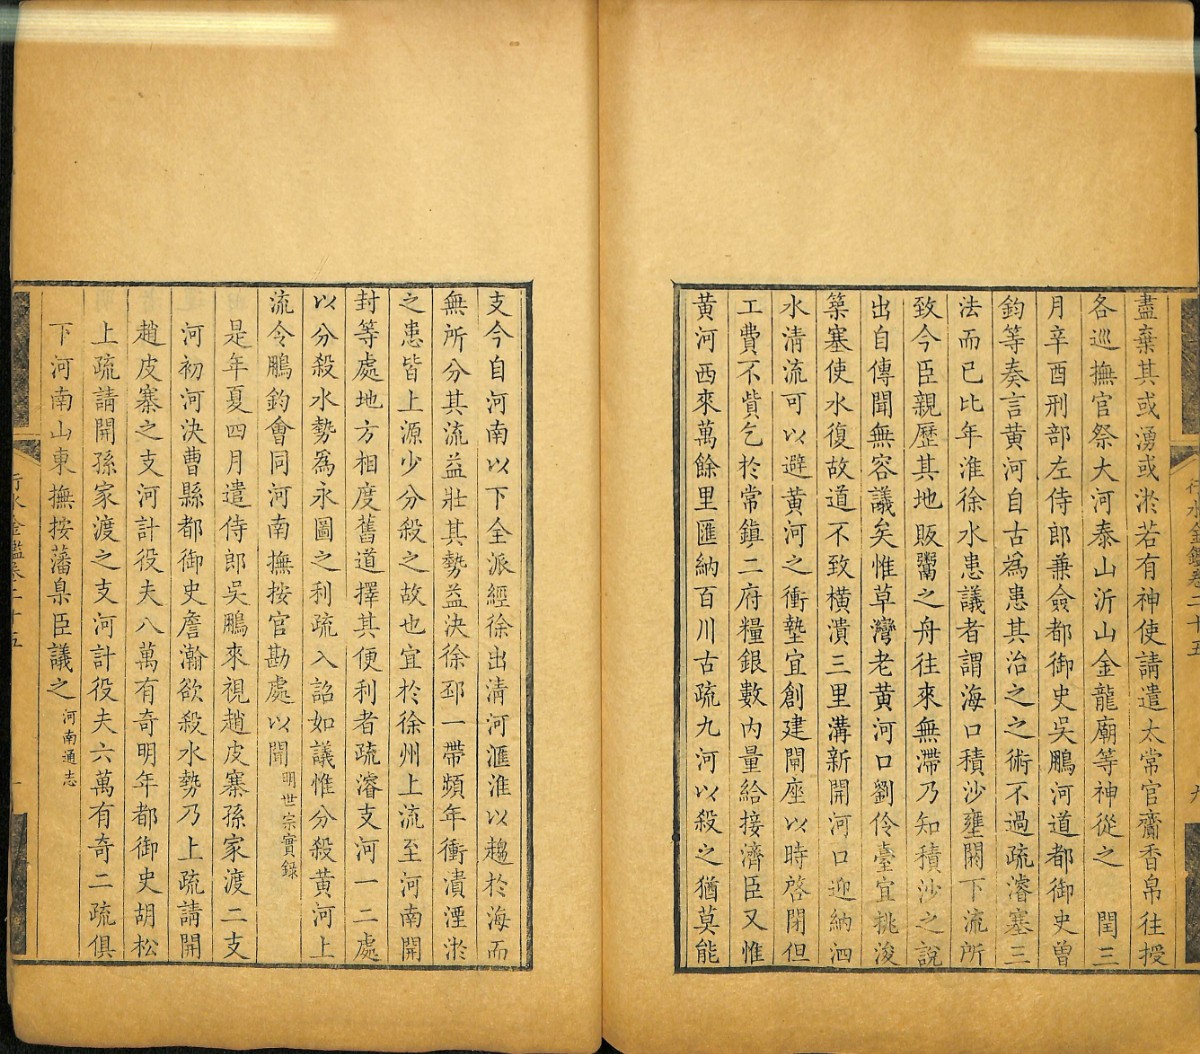 盡棄其或湧或淤若有神使請遣太常官齎香帛往授
各巡撫官祭大河泰山沂山金龍廟等神從之　閏三
月辛酉刑部左侍郎兼僉都御史吳鵬河道都御史曾
鈞等奏言黃河自古爲患其治之之術不過疏濬塞三
法而已比年淮徐水患議者謂海口積沙壅閼下流所
致今臣親歷其地販鬻之舟往來無滯乃知積沙之說
出自傳聞無容議矣惟草灣老黃河口劉伶臺宜挑浚
築塞使水復故道不致橫潰三里溝新開河口迎納泗
水清流可以避黃河之衝墊宜創建閘座以時啓閉但
工費不貲乞於常鎮二府糧銀數內量給接濟臣又惟
黃河西來萬餘里匯納百川古疏九河以殺之猶莫能
支今自河南以下全派經徐出清河滙淮以趨於海而
無所分其流益壯其勢益決徐邳一帶頻年衝潰湮淤
之患皆上源少分殺之故也宜於徐州上流至河南開
封等處地方相度舊道擇其便利者疏濬支河一二處
以分殺水勢爲永圖之利疏入詔如議惟分殺黃河上
流令鵬鈞會同河南撫按官勘處以聞明世宗實錄
是年夏四月遣侍郎吳鵬來視趙皮寨孫家渡二支
河初河決曹縣都御史詹瀚欲殺水勢乃上疏請開
趙皮寨之支河計役夫八萬有奇明年都御史胡松
上疏請開孫家渡之支河計役夫六萬有奇二疏俱
下河南山東撫按藩臬臣議之河南通志
行水金鑑卷二十五